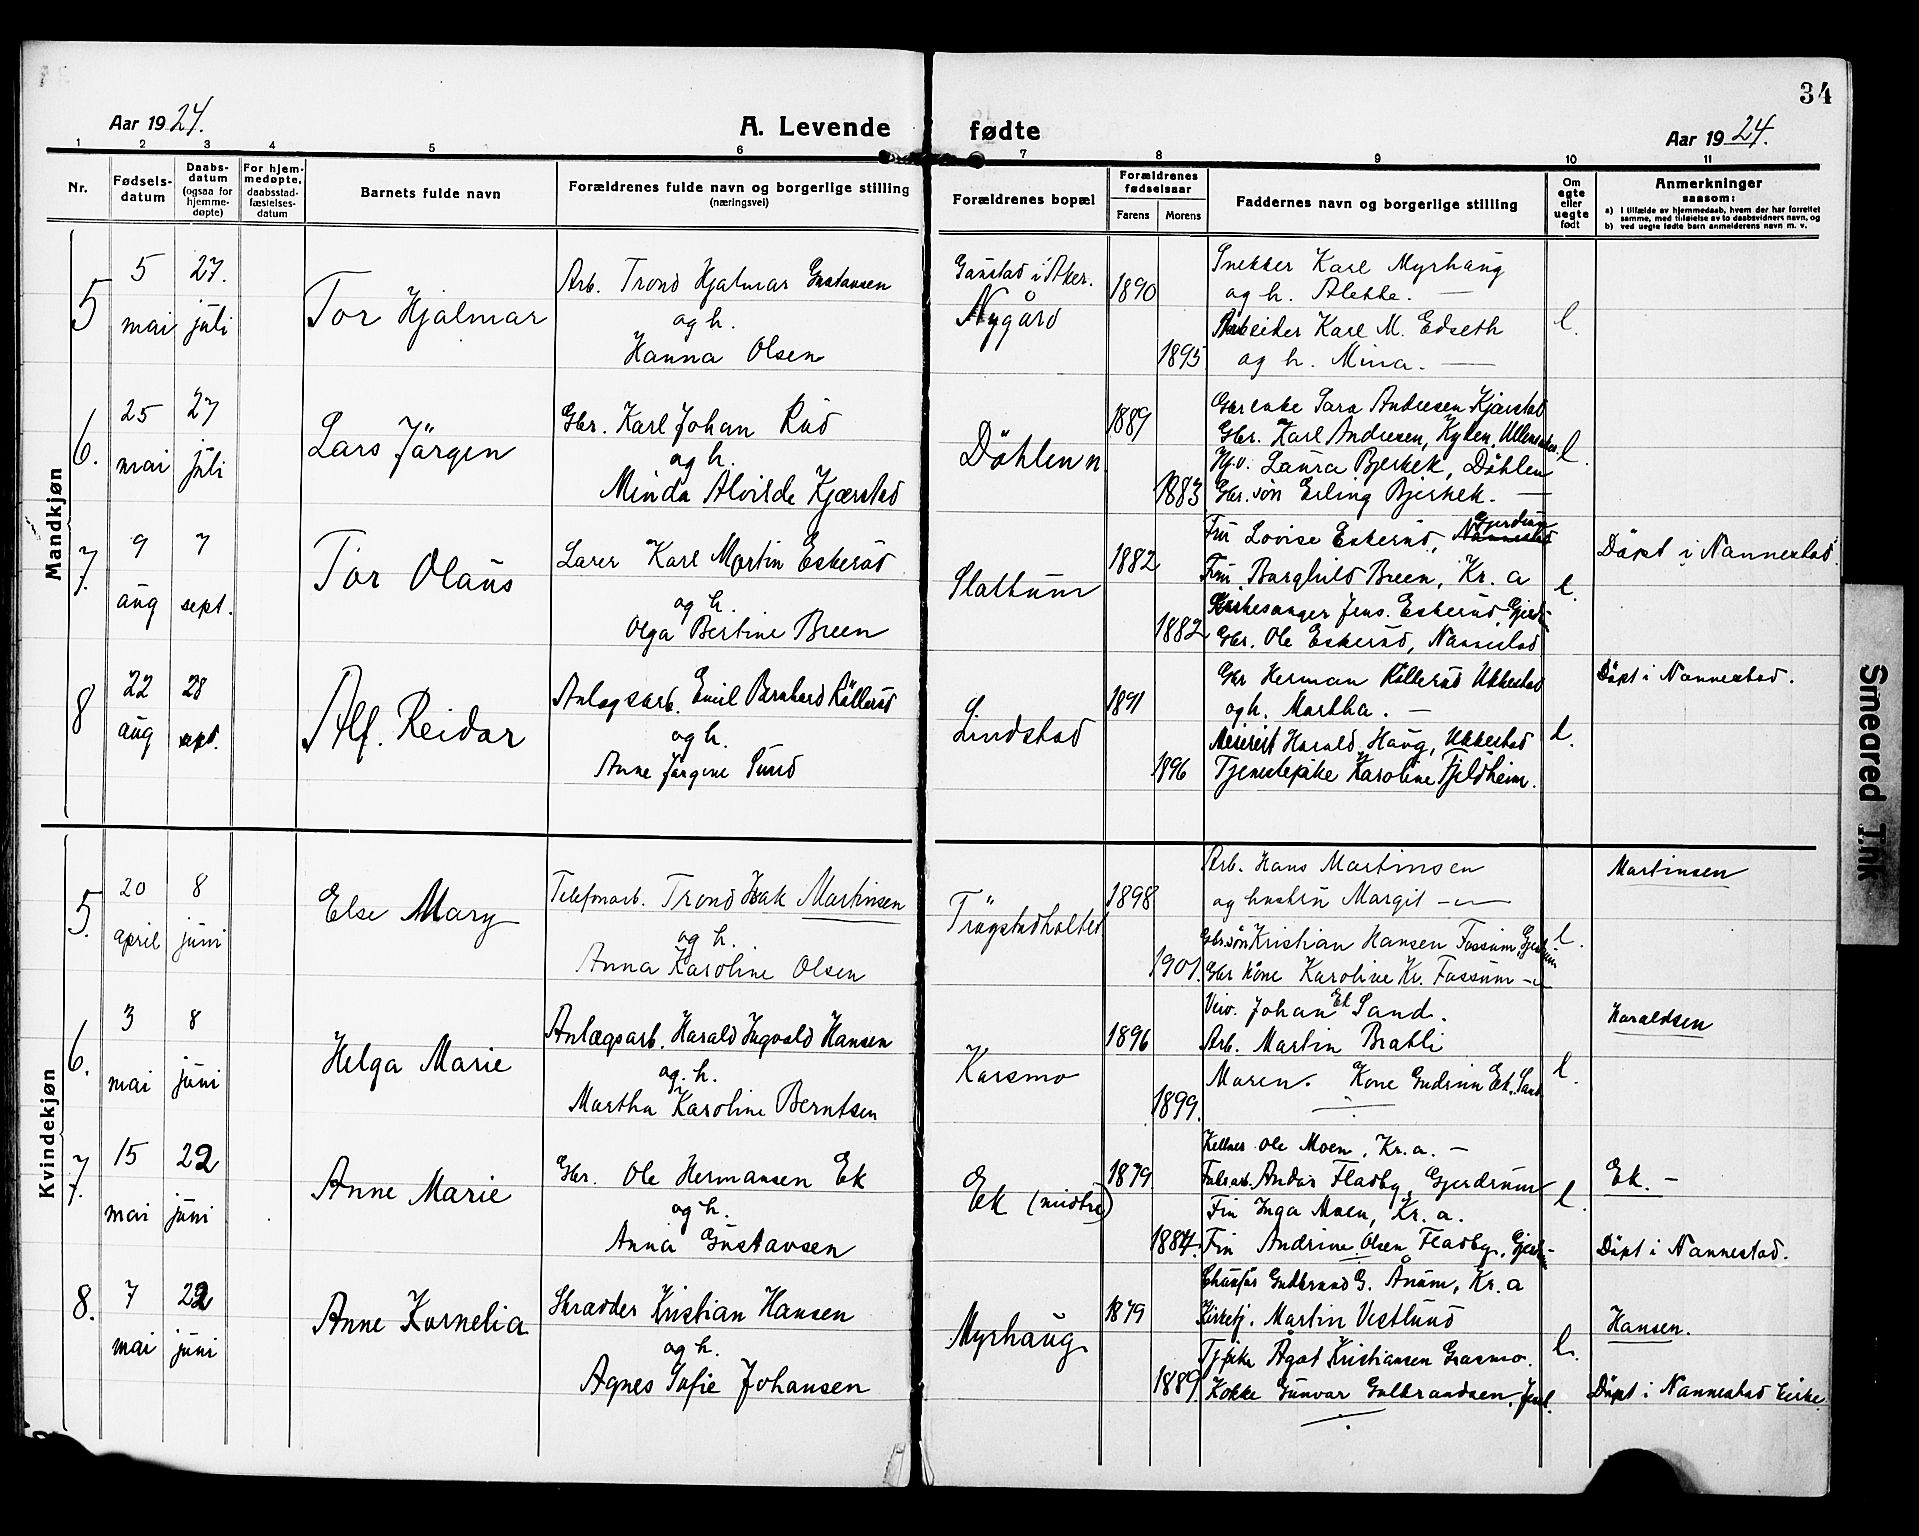 34
Aar 1924.
A. Levende fødte
Aar 1924.
1 2 3 4 5 6 7 8 9 10 11
Nr.
Fødsels-
datum
Daabs-
datum
(ogsaa for
hjemme-
døpte)
For hjem-
medøpte,
daabsstad-
fæstelses-
datum
Barnets fulde navn
Forældrenes fulde navn og borgerlige stilling
(næringsvei)
Forældrenes bopæl
Forældrenes
fødselsaar
Farens
Morens
Faddernes navn og borgerlige stilling
Om
egte
eller
uegte
født
Anmerkninger
saasom:
a) I tilfælde av hjemmedaab, hvem der har forrettet
samme, med tilføielse av to daabsvidners navn, og
b) ved uegte fødte barn anmelderens navn m. v.
Mandkjøn
5
5
mai
27.
juli
Tor Hjalmar
Arb. Trond Hjalmar Gustavsen
og h.
Hanna Olsen
Gaustad i Aker.
Nygård
1890
1895
Snekker Karl Myrhaug
og h. Alette. —
Arbeider Karl M. Edseth
og h. Mina. —
l.
6.
25
mai
27
juli
Lars Jörgen
Gbr. Karl Johan Rud
og h.
Minda Alvilde Kjærstad
Döhlen n.
1889
1883
Gbrenke Sara Andresen Kjærstad
Gbr. Karl Andresen, Kylen, Ullensaker
Hv. Laura Bjerkek, Döhlen
Gbr. sön Erling Bjerkek. —
l.
7.
9
aug
7
sept.
Tor Olaus
Lærer Karl Martin Eskerud
og h.
Olga Bertine Breen
Slattum
1882
1882
Fru Lovise Eskerud, Nannestad Gjerdrum
Fru Borghild Breen, Kr. a
Kirkesanger Jens Eskerud, Gjerdr.
Gbr. Ole Eskerud, Nannestad
l.
Döpt i Nannestad.
8
22
aug
28
sept.
Alf Reidar
Anlægsarb. Emil Bernhard Röllerud
og h.
Anne Jörgine Sund
Lindstad
1891
1896
Gbr Herman Röllerud Ukkestad
og h. Martha. —
Meierist Harald Haug, Ukkestad
Tjenestepike Karoline Fjeldheim.
l.
Döpt i Nannestad.
Kvindekjøn
5.
20
april
8
juni
Else Mary
Telefonarb. Trond Isak Martinsen
og h.
Anna Karoline Olsen
Trögstadholtet
1898
1901.
Arb. Hans Martinsen
og hustru Margit —
Gbr. sön Kristian Hansen Fossum, Gjerdrum
Gbr kone Karoline Kr. Fossum —
l.
Martinsen
6.
3
mai
8
juni
Helga Marie
Anlægsarb. Harald Ingvald Hansen
og. h.
Martha Karoline Berntsen
Karsmo
1896
1899.
Veiv. Johan Ek Sand.
Arb. Martin Bratli
Maren. Kone Gudrun Ek. Sand
l.
Haraldsen
7.
15
mai
22
juni
Anne Marie
Gbr. Ole Hermansen Ek
og h.
Anna Gustavsen
Ek (midtre)
1879
1884.
Kellner Ole Moen, Kr. a. —
Andor Fladby, Gjerdrum
Fru Inga Moen, Kr. a.
Fru Andrine Olsen Fladby, Gjerdr.
l.
Ek. —
Döpt i Nannestad.
8.
7
mai
22
juni
Anne Kornelia
Skrædder Kristian Hansen
og h.
Agnes Sofie Johansen
Myrhaug
1879
1889.
Chaufør Gudbrand G. Ånum, Kr. a
Kirketj. Martin Vestlund
Tj. pike Ågot Kristiansen Grasmo.
Kokke Gunvor Gulbrandsen,
l.
Hansen.
Döpt i Nannestad kirke
Smeared Ink